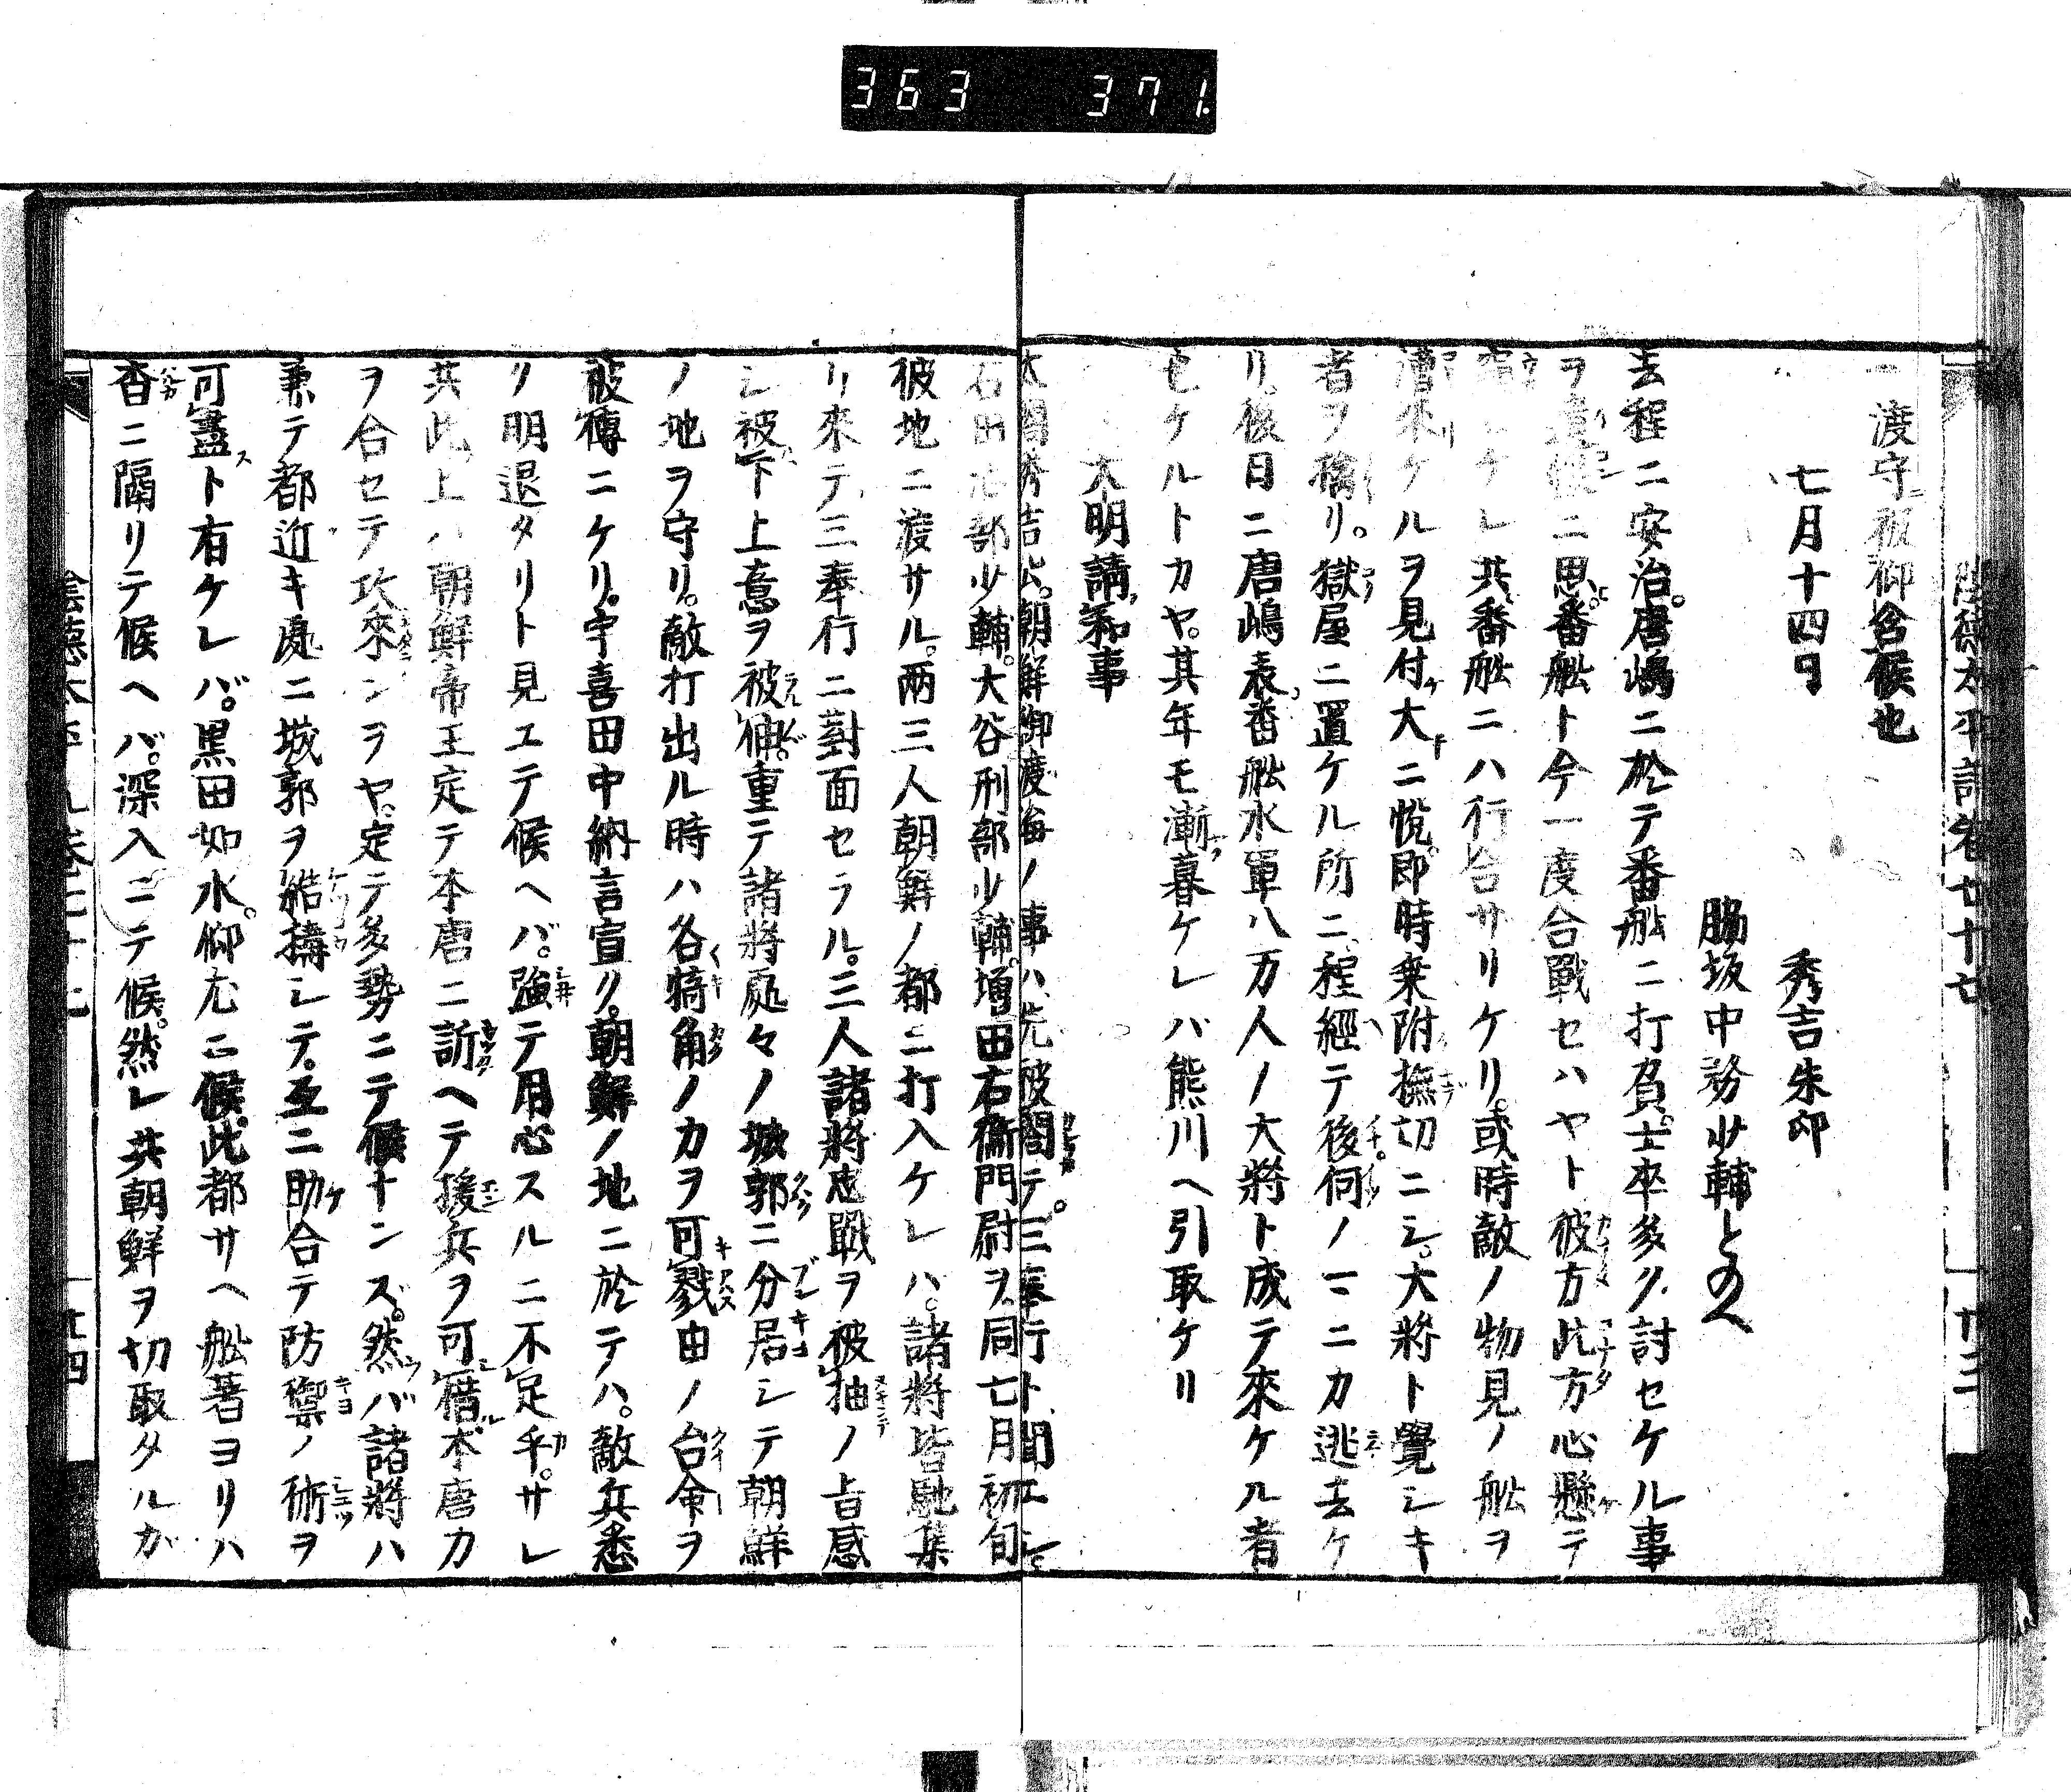 363 371.
陰徳太平記卷七十七 廿三
渡守被仰含候也
七月十四日 秀吉朱印
脇坂中務少輔とのへ
去程ニ安治。唐嶋ニ於テ番舩ニ打負。士卒多ク討セケル事
ヲ遺恨ニ思ヒ。番舩ト今一度合戰セハヤト彼方此方心懸ケテ
レ共番舩ニハ行合サリケリ。或時敵ノ物見ノ舩ヲ
漕來リケルヲ見付ケ大ニ悦。即時乗附撫切ニシ。大將ト覺シキ
者ヲ擒リ。獄屋ニ置ケル所ニ。程經テ後何ノ一ニカ逃去ケ
リ。後日ニ唐嶋表ノ番舩水軍八万人ノ大將ト成テ來ケル者
也ケルトカヤ。其年モ漸暮ケレハ熊川ヘ引取ケリ
大明請和事
太閤秀吉公。朝鮮御渡海ノ事ハ先被閣テ。三奉行ト聞エシ。
石田治部少輔。大谷刑部少輔。増田右衞門尉ヲ同七月初旬
彼地ニ渡サル。兩三人朝鮮ノ都ニ打入ケレハ。諸將皆馳集
リ來テ三奉行ニ對面セラル。三人諸將忠戰ヲ被抽ノ旨感
シ被下上意ヲ被伸。重テ諸將處々ノ城郭ニ分居シテ朝鮮
ノ地ヲ守リ。敵打出ル時ハ各犄角ノカヲ可戮由ノ台命ヲ
被傳ニケリ。宇喜田中納言宣リ。朝鮮ノ地ニ於テハ。敵兵悉
ク明退タリト見エテ候ヘバ。強テ用心スルニ不足乎。サレ
共此上ハ朝鮮帝王定テ本唐ニ訴ヘテ援兵ヲ可借。本唐カ
ヲ合セテ攻來ンヲヤ。定テ多勢ニテ候ナンズ。然バ諸將ハ
兼テ都近キ處ニ城郭ヲ結構シテ。互ニ助合テ防禦ノ術ヲ
可盡ト有ケレバ。黒田如水。仰尤ニ候。此都サヘ舩著ヨリハ
杳ニ隔リテ候ヘバ。深入ニテ候。然レ共朝鮮ヲ切取タルガ
陰徳太平記卷七十七 廿四